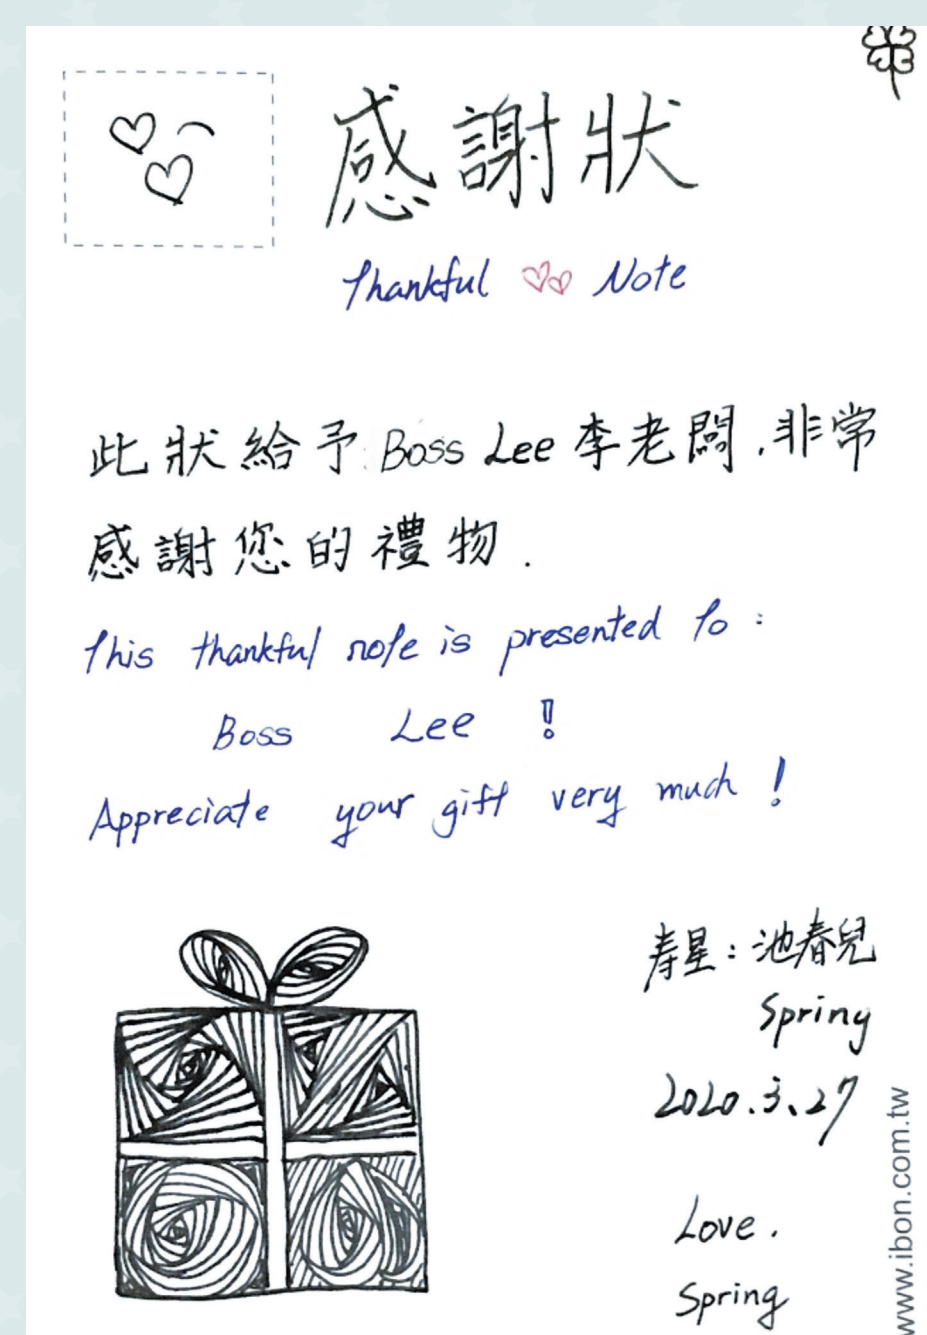 感謝狀
Thankful Note
此狀給予 Boss Lee 李老闆，非常
感謝您的禮物．
This thankful note is presented to :
Boss Lee !
Appreciate your gift very much !
寿星：池春兒
Spring
2020.3.27
Love.
Spring
www.ibon.com.tw